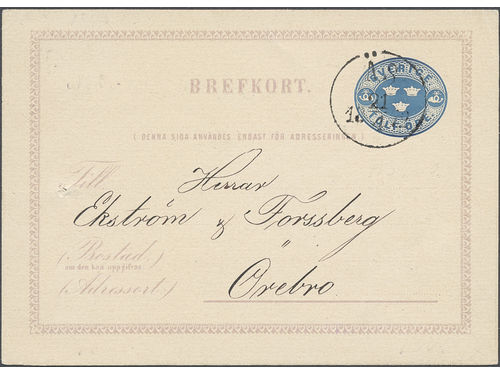 BREFKORT.
SVERIGE
TOLF ÖRE
21
( DENNA SIDA ANVÄNDES ENDAST FÖR ADRESSERINGEN. )
Till
Herrar
Ekström & Forssberg
(Bostad.)
om den kan uppgifvas
Örebro
(Adressort.)